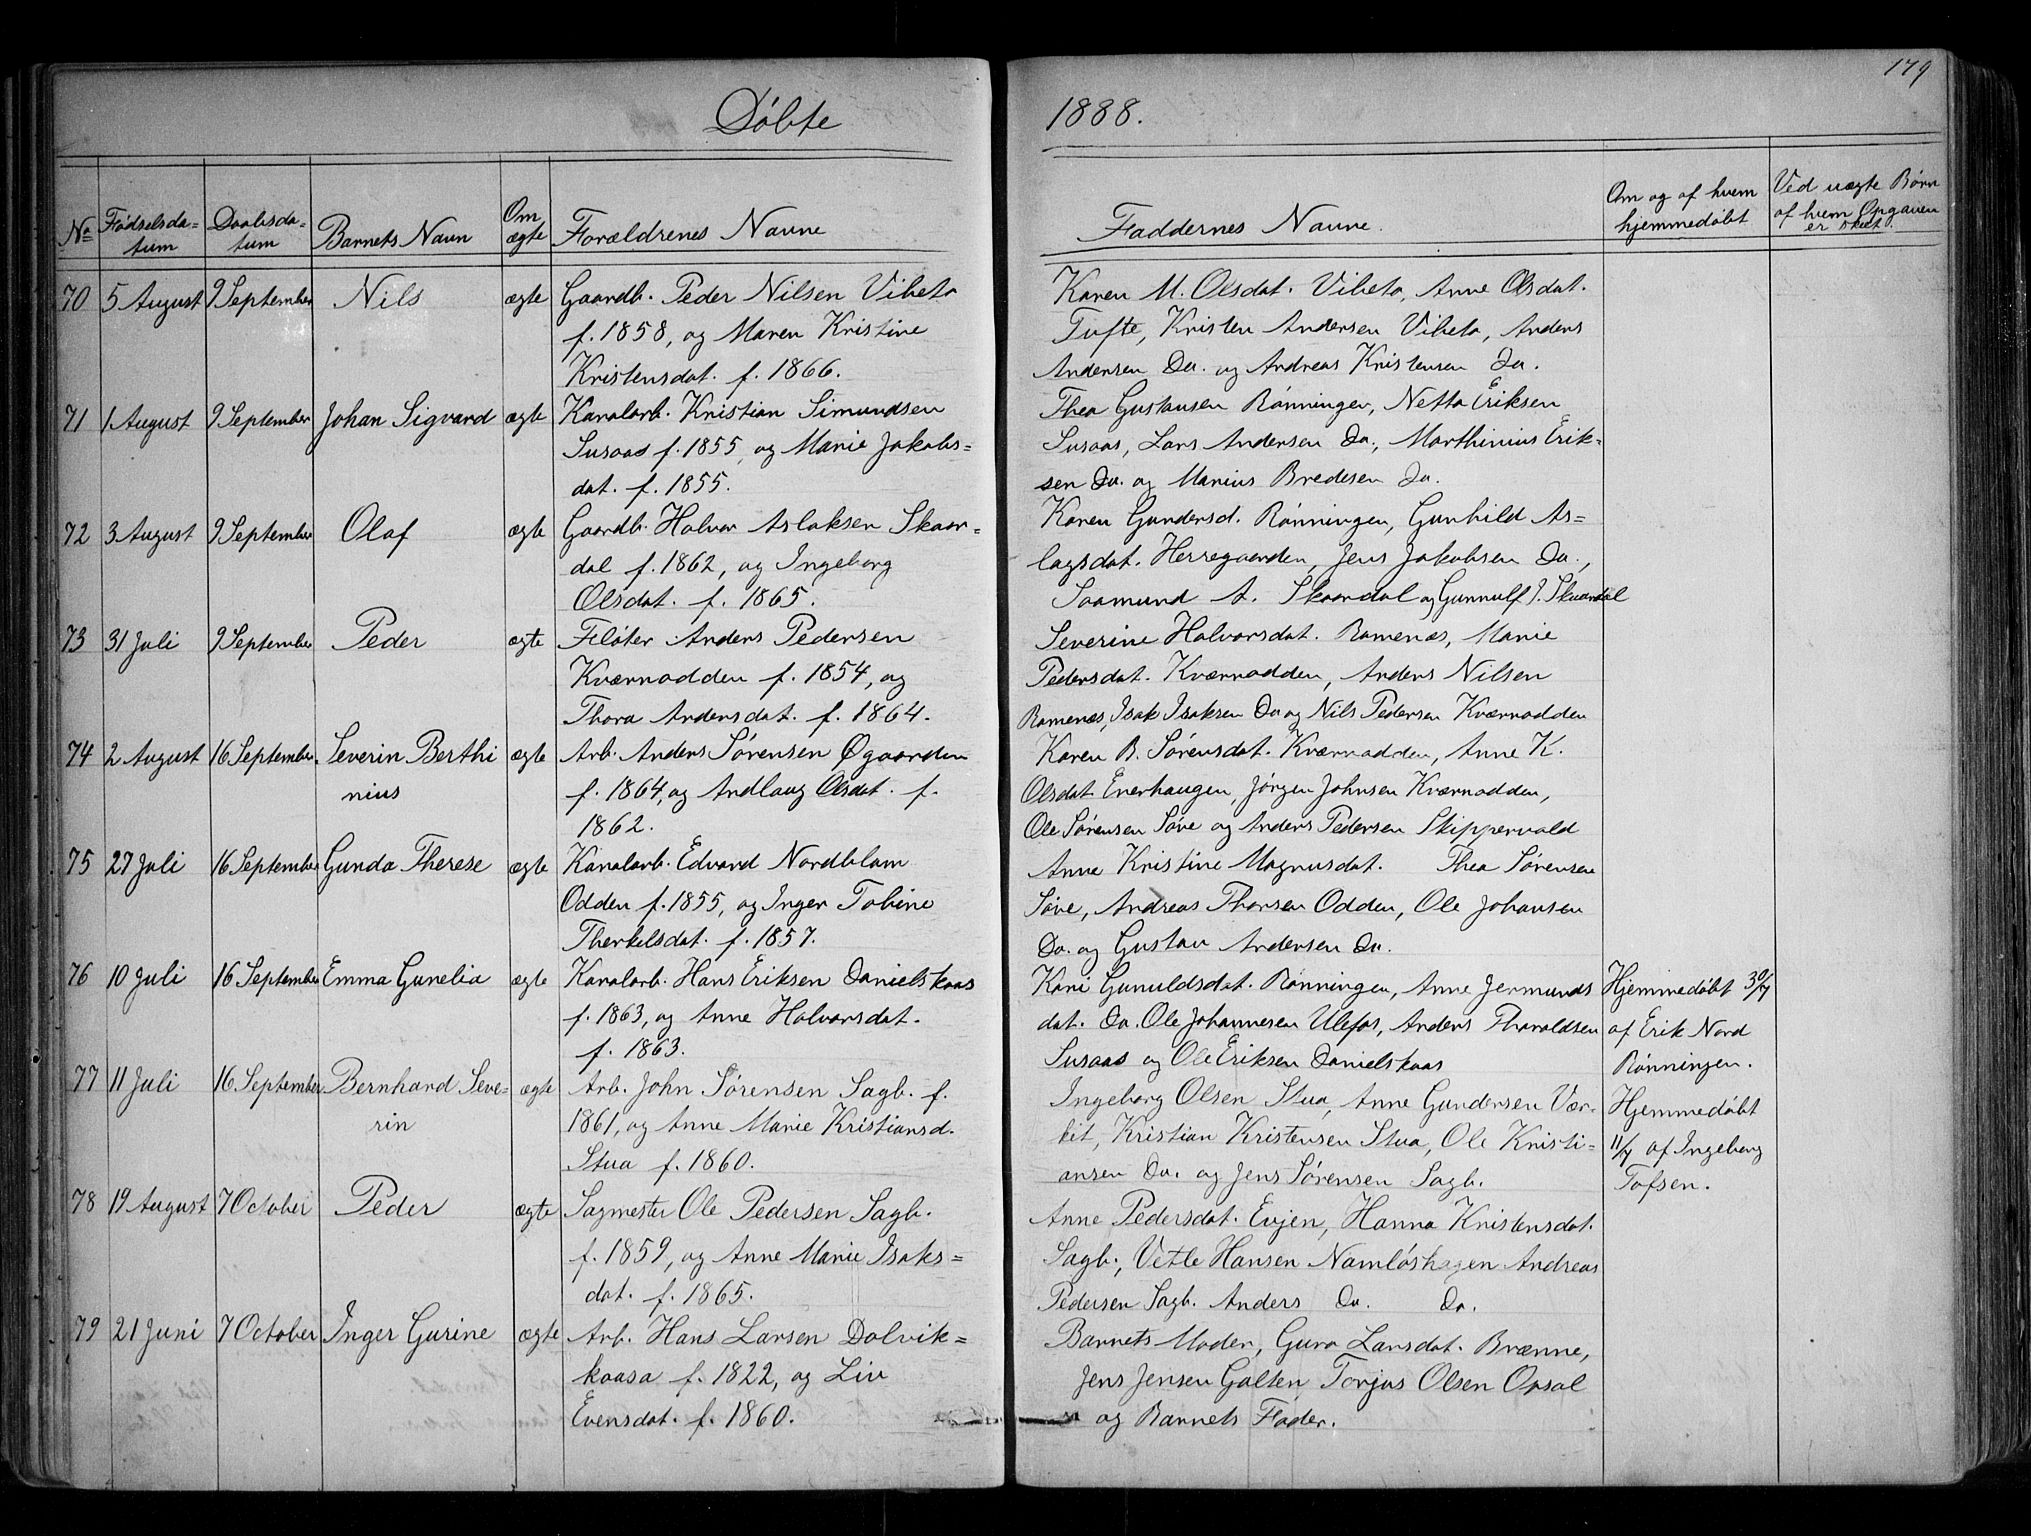 179
Døbte 1888.
No Fødselsda= Daabsda= Barnets Navn Om Forældrenes Navne Faddernes Navne. Om og af hvem Ved uægte Børn
tum tum ægte hjemmedøbt af hvem Opgaven
er skeet.
70 5 August 9 September Nils ægte Gaardb. Peder Nilsen Vibeto
f. 1858, og Maren Kristine
Kristensdat. f. 1866.
Karen M. Olsdat. Vibeto, Anne Olsdat.
Tufte, Kristen Andersen Vibeto, Anders
Andersen Do. og Andreas Kristensen Do.
71 1 August 9 September Johan Sigvard ægte Kanalarb. Kristian Simundsen
Susaas f. 1855, og Marie Jakobs=
dat. f. 1855.
Thea Gustavsen Rønningen, Netta Eriksen
Susaas, Lars Andersen Do., Marthinius Erik=
sen Do. og Marius Bredesen Do.
72 3 August 9 September Olaf ægte Gaardb. Halvor Aslaksen Skaar=
dal f. 1862, og Ingeborg
Olsdat. f. 1865.
Karen Gundersd. Rønningen, Gunhild As=
lagsdat. Herregaarden, Jens Jakobsen Do.,
Saamund A. Skaardal og Gunnulf J. Skaardal
73 31 Juli 9 September Peder ægte Fløter Anders Pedersen
Kværnodden f. 1854, og
Thora Andersdat. f. 1864.
Severine Halvorsdat. Romenæs, Marie
Pedersdat. Kværnodden, Anders Nilsen
Romenæs, Isak Isaksen Do og Nils Pedersen Kværnodden
74 2 August 16 September. Severin Berthi ægte Arb. Anders Sørensen Øgaarden
nius f. 1864, og Andlaug Olsdat. f.
1862.
Karen B. Sørensdat. Kværnodden, Anne K.
Olsdat Enerhaugen, Jørgen Johnsen Kværnodden,
Ole Sørensen Søve og Anders Pedersen Skippervold
75 27 Juli 16 September Gunda Therese ægte Kanalarb. Edvard Nordblom
Odden f. 1855, og Inger Tobine
Therkelsdat. f. 1857.
Anne Kristine Magnusdat. Thea Sørensen
Søve, Andreas Thorsen Odden, Ole Johansen
Do. og Gustav Andersen Do.
76 10 Juli 16 September Emma Gunelia ægte Kanalarb. Hans Eriksen Danielskaas
f. 1863, og Anne Halvorsdat.
f. 1863.
Kari Gunuldsdat. Rønningen, Anne Jermunds Hjemmedøbt 30/7
dat. Do. Ole Johannesen Ulefos, Anders Tharaldsen af Erik Nord
Susaas og Ole Eriksen Danielskaas Rønningen.
77 11 Juli 16 September Bernhard Seve= ægte Arb. John Sørensen Sagb. f.
rin 1861, og Anne Marie Kristiansd.
Stua f. 1860.
Ingeborg Olsen Stua, Anne Gundersen Vær= Hjemmedøbt
kit, Kristian Kristensen Stua, Ole Kristi= 11/7 af Ingeborg
ansen Do. og Jens Sørensen Sagb. Tofsen.
78 19 August 7 October Peder ægte Sagmester Ole Pedersen Sagb.
f. 1859, og Anne Marie Isaks=
dat. f. 1865.
Anne Pedersdat. Evjen, Hanna Kristensdat.
Sagb., Vetle Hansen Namløshagen Andreas
Pedersen Sagb. Anders Do. Do.
79 21 Juni 7 October Inger Gurine ægte Arb. Hans Larsen Dolvik=
kaasa f. 1822, og Liv
Evensdat. f. 1860.
Barnets Moder, Guro Larsdat. Brænne,
Jens Jensen Galten, Torjus Olsen Opsal
og Barnets Fader.